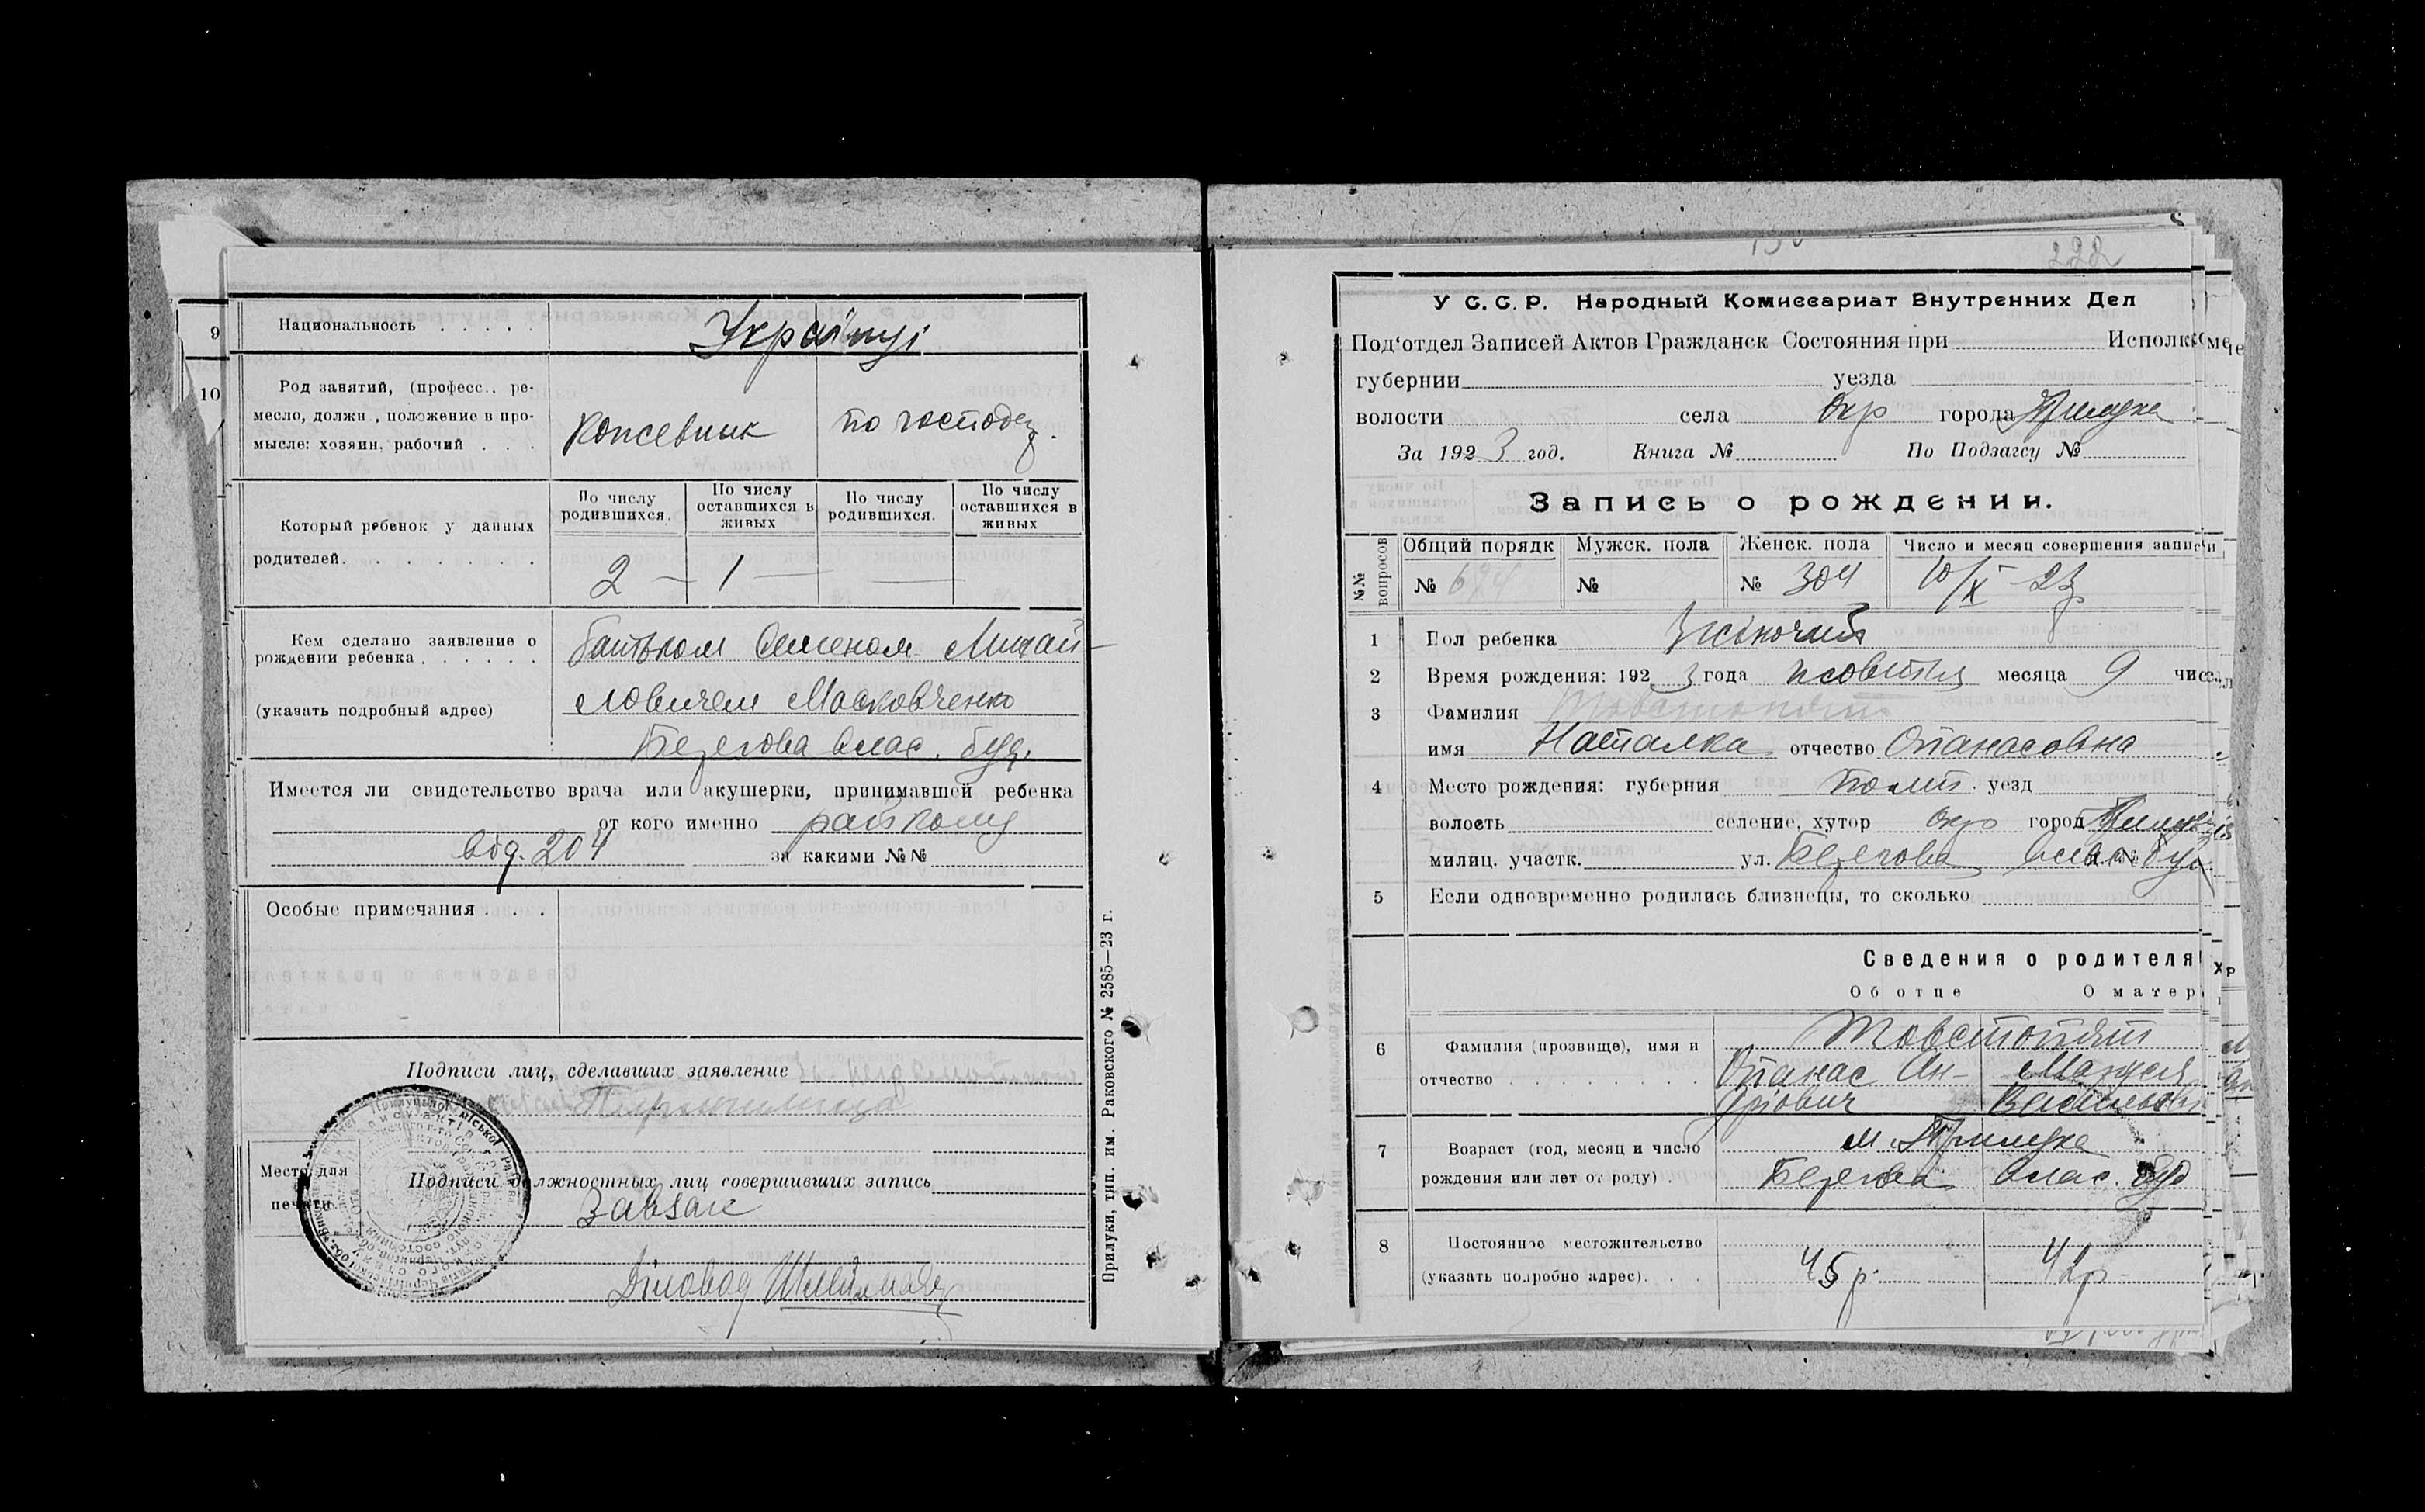 9 Национальность . . . . . Українці
10 Род занятий, (професс., ре-
месло, должн., положение в про-
мысле: хозяин, рабочий . . .
Кожевник
по господ.
Который ребенок у данных
родителей. . . . . . .
По числу родившихся.
По числу оставшихся в живых
По числу родившихся.
По числу оставшихся в живых
2 — 1 —
Кем сделано заявление о
рождении ребенка . . . . . .
(указать подробный адрес)
батьком Семеном Михай-
ловичем Московченко
Берегова влас. буд.
Имеется ли свидетельство врача или акушерки, принимавшей ребенка
от кого именно райкому
від. 204 за какими №№
Особые примечания . . .
Подписи лиц, сделавших заявление
Место для
печати
Подписи должностных лиц совершивших запись
Завзаг
Діловод
Прилуки, тип. им. Раковского № 2585—23 г.
222
У С. С. Р. Народный Комиссариат Внутренних Дел
Под‘отдел Записей Актов Гражданск Состояния при Исполк
губернии уезда
волости села Окр города Прилука
За 1923 год. Книга № По Подзагсу №
Запись о рождении.
№№ вопросов
Общий порядк
Мужск. пола
Женск. пола
Число и месяц совершения записи
№ 624
№
№ 304
10/X 23
1 Пол ребенка жіночий
2 Время рождения: 1923 года жовтня месяца 9 числ
3 Фамилия Товстопят
имя Наталка отчество Опанасовна
4 Место рождения: губерния Полт. уезд
волость селение, хутор Окр город Прилука
милиц. участк. ул. Берегова влас буд
5 Если одновременно родились близнецы, то сколько
Сведения о родителя
Об отце О матер
6 Фамилия (прозвище), имя и
отчество . . . . . . . .
Товстопят
Опанас Ан-
дріович
Мария
Васильевн
7 Возраст (год, месяц и число
рождения или лет от роду) .
м. Прилука
Берегова влас. буд
8 Постоянное местожительство
(указать подробно адрес). . .
45 р.
42 р